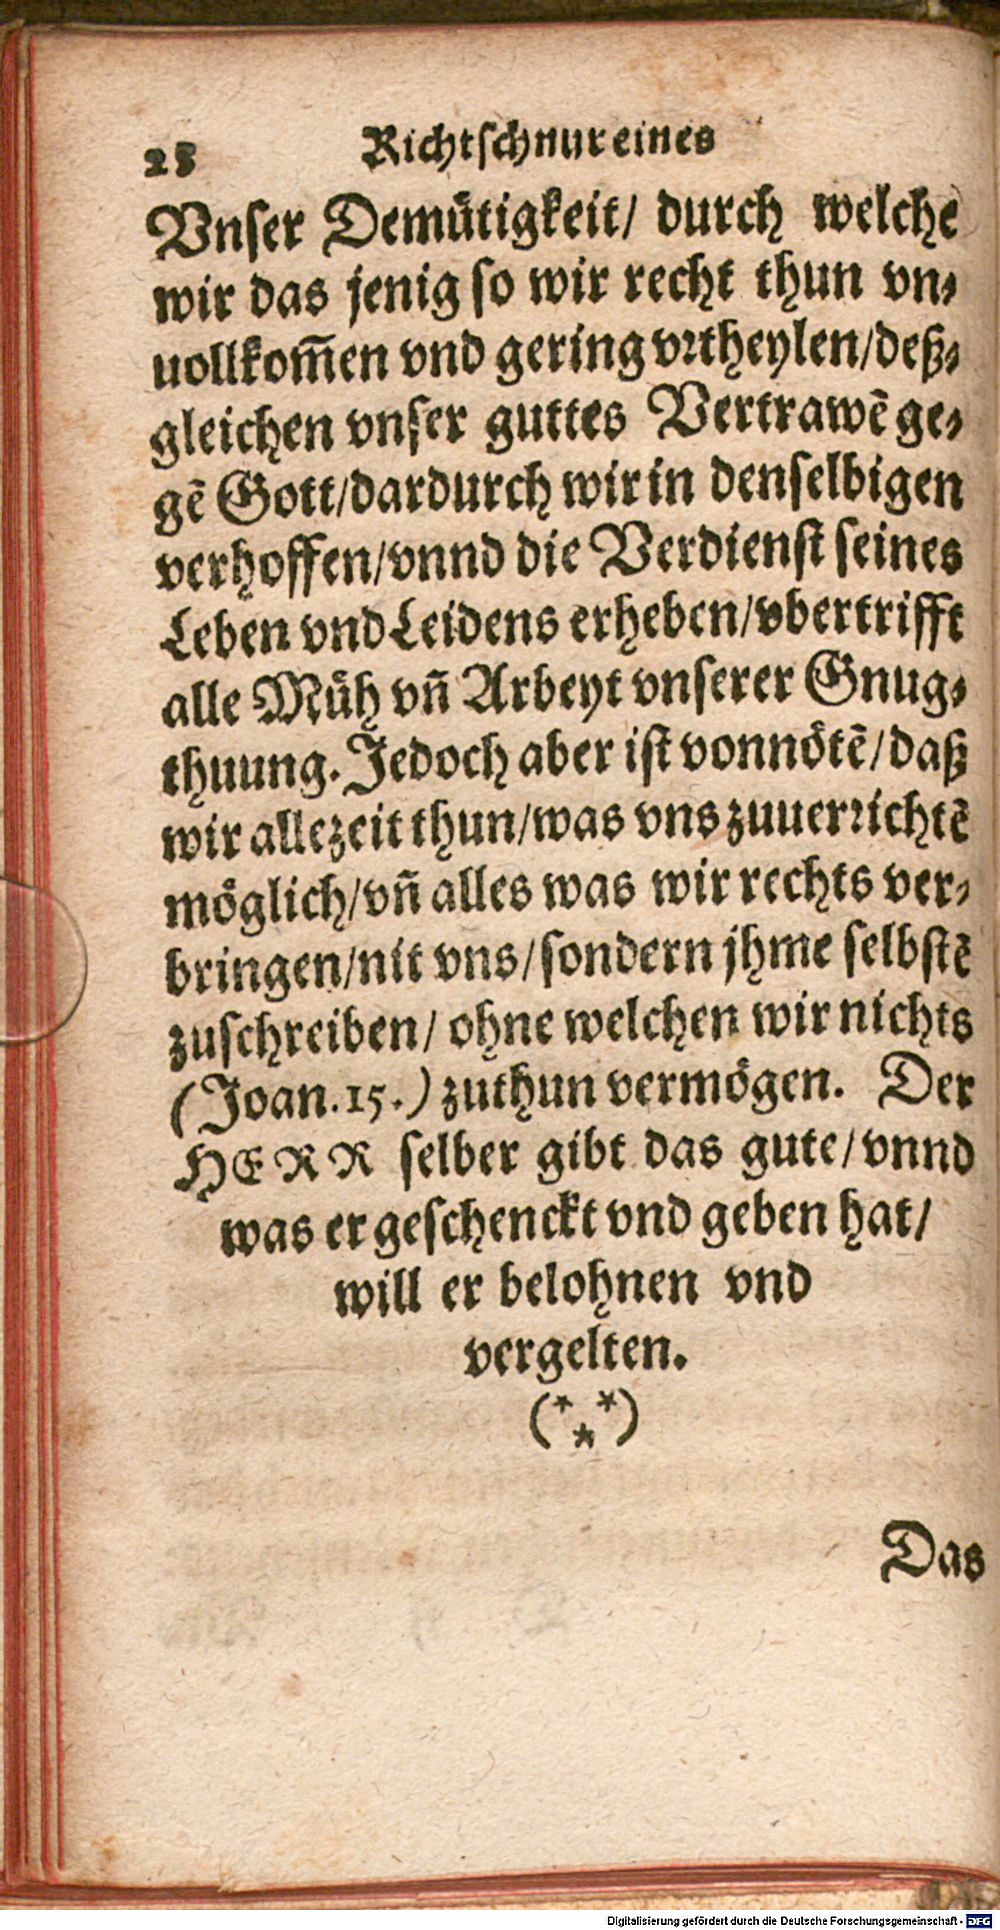 28 Richtschnur eines
Vnser Demütigkeit/ durch welche
wir das jenig so wir recht thun vn-
uollkom̃en vnd gering vrtheylen/deß-
gleichen vnser guttes Vertrawẽ ge-
gẽ Gott/dardurch wir in denselbigen
verhoffen/vnnd die Verdienst seines
Leben vnd Leidens erheben/vbertrifft
alle Müh vñ Arbeyt vnserer Gnug-
thuung. Jedoch aber ist vonnötẽ/daß
wir allezeit thun/was vns zuuerrichtẽ
möglich/vñ alles was wir rechts ver-
bringen/nit vns/sondern jhme selbstẽ
zuschreiben/ ohne welchen wir nichts
(Joan.15.) zuthun vermögen. Der
HERR selber gibt das gute/vnnd
was er geschenckt vnd geben hat/
will er belohnen vnd
vergelten.
(***)
Das
Digitalisierung gefördert durch die Deutsche Forschungsgemeinschaft - DFG